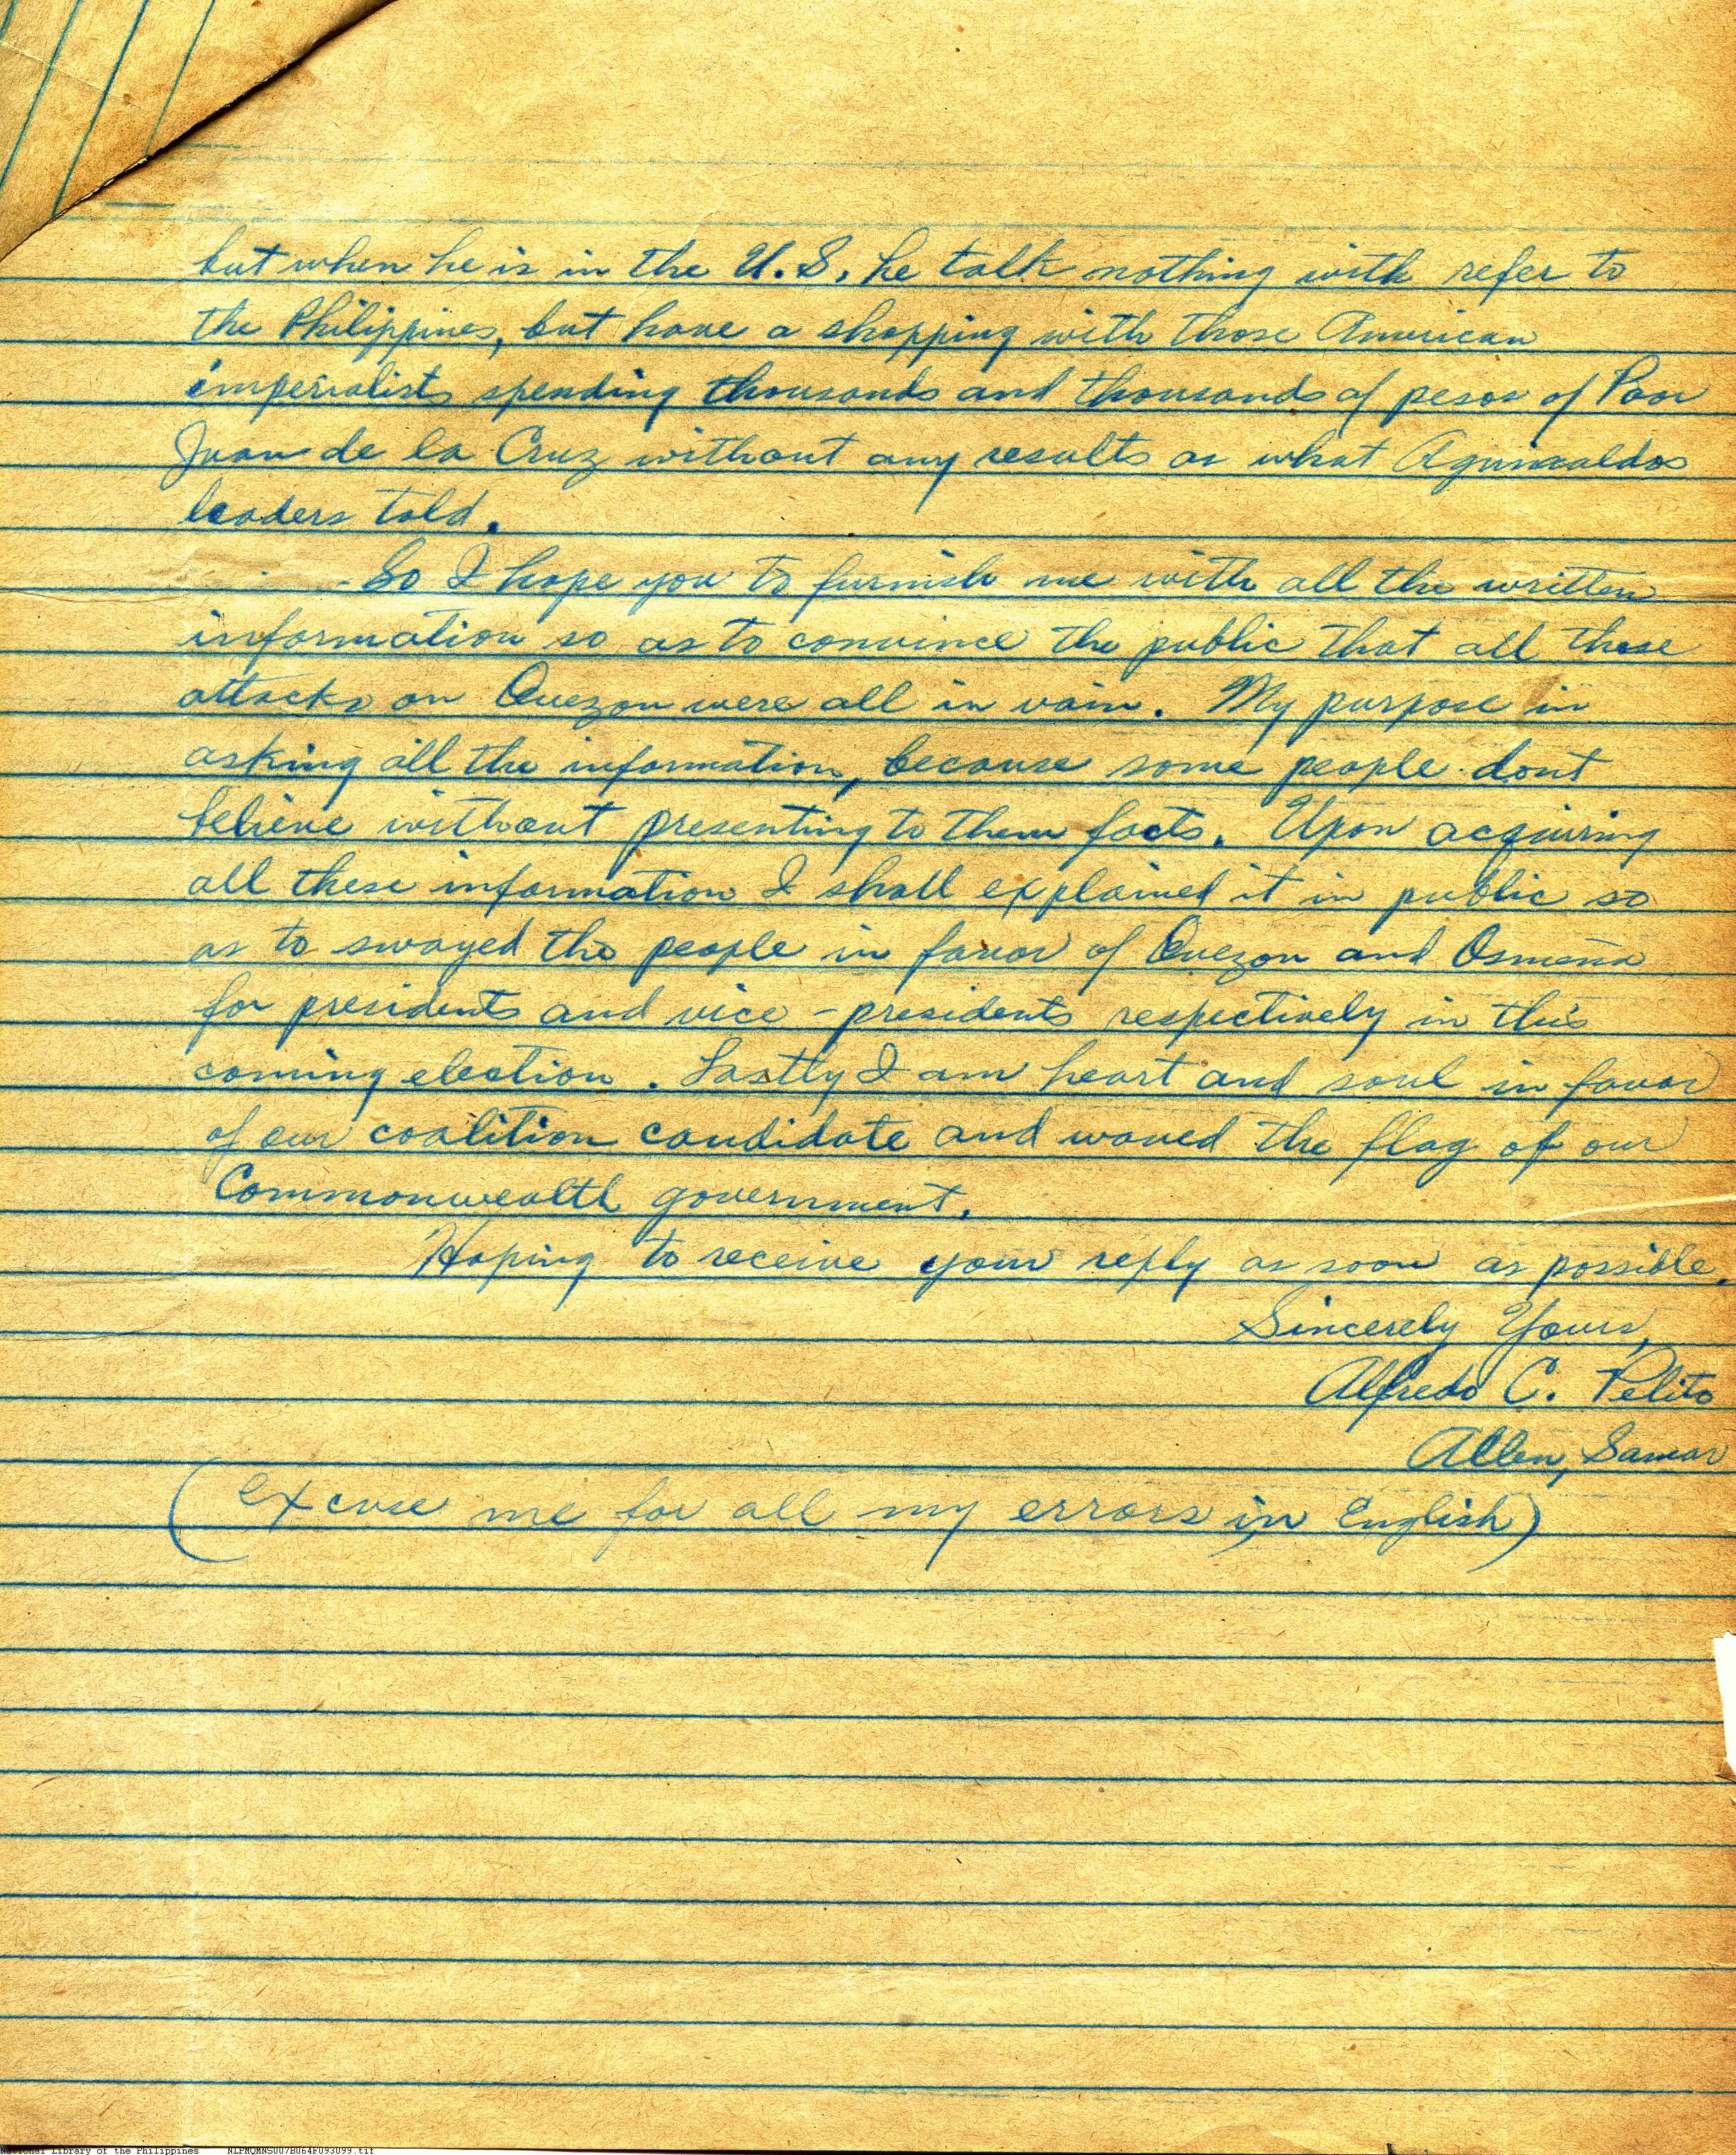 but when he is in the U.S. he talk nothing with refer to
the Philippines, but have a shopping with those American
imperialists spending thousands and thousands of pesos of Poor
Juan de la Cruz without any results as what Aguinaldos
leaders told.
So I hope you to furnish me with all the written
information so as to convince the public that all these
attacks on Quezon were all in vain. My purpose in
asking all the information, because some people dont
believe without presenting to them facts. Upon acquiring
all these information I shall explained it in public so
as to swayed the people in favor of Quezon and Osmeña
for presidents and vice-presidents respectively in this
coming election. Lastly I am heart and soul in favor
of our coalition candidate and waved the flag of our
Commonwealth government.
Hoping to receive your reply as soon as possible.
Sincerely Yours,
Alfredo C. Pelito
Allen, Samar
(Excuse me for all my errors in English)
National Library of the Philippines NLPMQMNS007B064F093099.tif